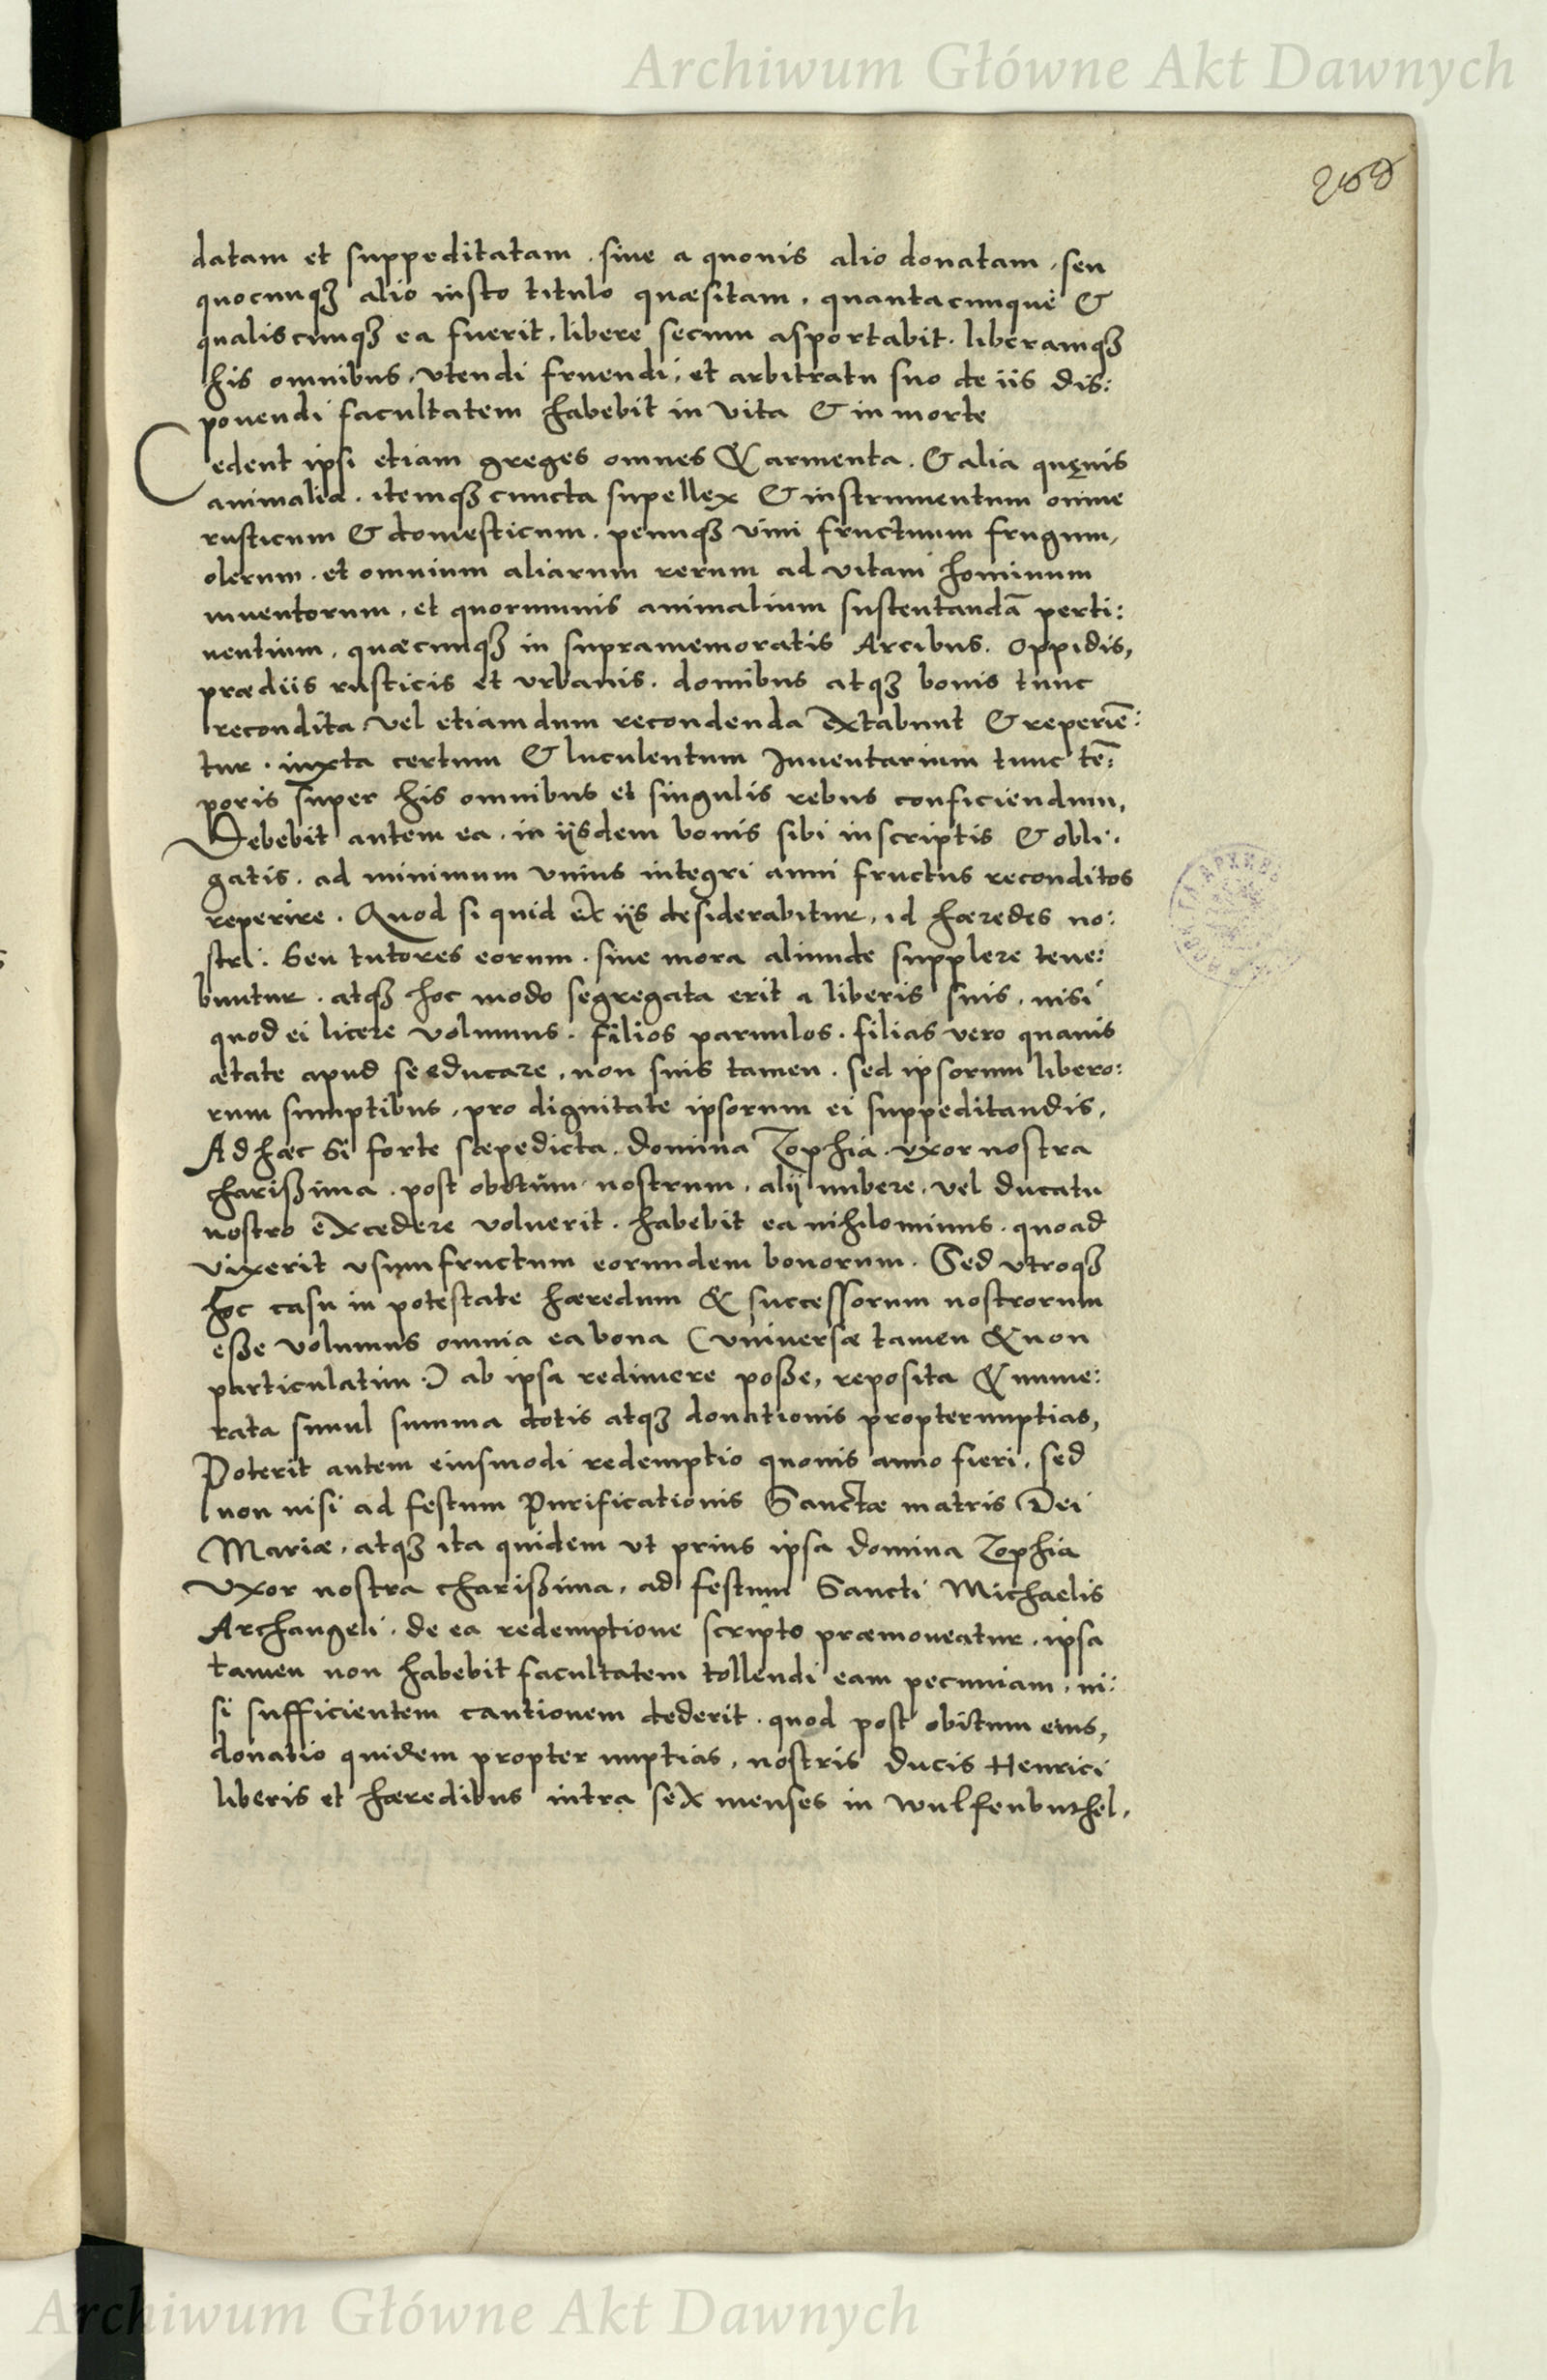 Archiwum Główne Akt Dawnych
datam et suppeditatam . siue a quouis alio donatam , seu
quocunqꝫ alio iusto titulo quæsitam , quantacunque &
qualiscunqꝫ ea fuerit , libere secum asportabit . liberamqꝫ
his omnibus , vtendi fruendi , et arbitratu suo de iis dis:
ponendi facultatem habebit in vita & in morte
Cedent ipsi etiam greges omnes & armenta . & alia quęuis
animalia . itemqꝫ cuncta supellex & instrumentum omne
rusticum & domesticum . penusqꝫ vini fructuum frugum,
olerum . et omnium aliarum rerum ad vitam hominum
iuuentorum , et quorumuis animalium sustentandā perti:
nentium , quæcunqꝫ in supramemoratis Arcibus . Oppidis,
prædiis rusticis et vrbanis . domibus atqꝫ bonis tunc
recondita vel etiamdum recondenda extabunt & reperiē:
tur . iuxta certum & luculentum Inuentarium tunc tē:
poris super his omnibus et singulis rebus conficiendum,
Debebit autem ea . in iisdem bonis sibi inscriptis & obli:
gatis . ad minimum vnius integri anni fructus reconditos
reperire . Quod si quid ex iis desiderabitur , id hæredes no:
stri . Seu tutores eorum . siue mora aliunde supplere tene:
buntur . atqꝫ hoc modo segregata erit a liberis suis , nisi
quod ei licere volumus . filios paruulos . filias vero quauis
ætate apud se educare , non suis tamen . sed ipsorum libero:
rum sumptibus , pro dignitate ipsorum ei suppeditandis,
Ad hæc Si forte sæpedicta . domina Zophia . vxor nostra
charißima . post obitum nostrum , alii nubere , vel ducatu
nostro excedere voluerit . habebit ea nihilominus . quoad
vixerit vsumfructum eorundem bonorum . Sed vtroqꝫ
hoc casu in potestate hæredum & successorum nostrorum
eße volumus omnia ea bona ( vniuersæ tamen & non
particulatim .) ab ipsa redimere poße , reposita & nume:
rata simul summa dotis atqꝫ donationis propternuptias,
Poterit autem eiusmodi redemptio quouis anno fieri , sed
non nisi ad festum Purificationis Sanctæ matris Dei
Mariæ , atqꝫ ita quidem vt prius ipsa domina Zophia
Vxor nostra charißima , ad festum Sancti Michaelis
Archangeli , de ea redemptione scripto præmoneatur , ipsa
tamen non habebit facultatem tollendi eam pecuniam , ni:
si sufficientem cautionem dederit . quod post obitum eius,
donatio quidem propter nuptias , nostris ducis Henrici
liberis et hæredibus intra sex menses in Wulfenbuthel ,
Archiwum Główne Akt Dawnych